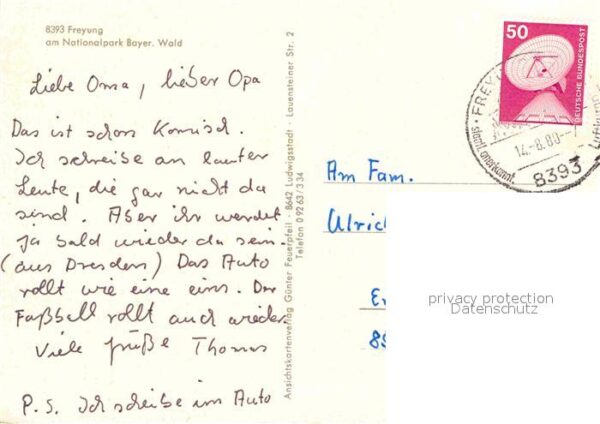 8393 Freyung
am Nationalpark Bayer. Wald
Liebe Oma, lieber Opa
Das ist schon Komisch.
Ich schreibe an lauter
Leute, die gar nicht da
sind. Aber ihr werdet
ja bald wieder da sein.
(aus Dresden) Das Auto
rollt wie eine eins. Der
Fußball rollt auch wieder
Viele Grüße Thomas
P.S. Ich schreibe im Auto
Ansichtskartenverlag Günter Feuerpfeil · 8642 Ludwigsstadt · Lauensteiner Str. 2
Telefon 09263/334
50
DEUTSCHE BUNDESPOST
14.-8.80-
8393
Am Fam.
Ulric
privacy protection
Datenschutz